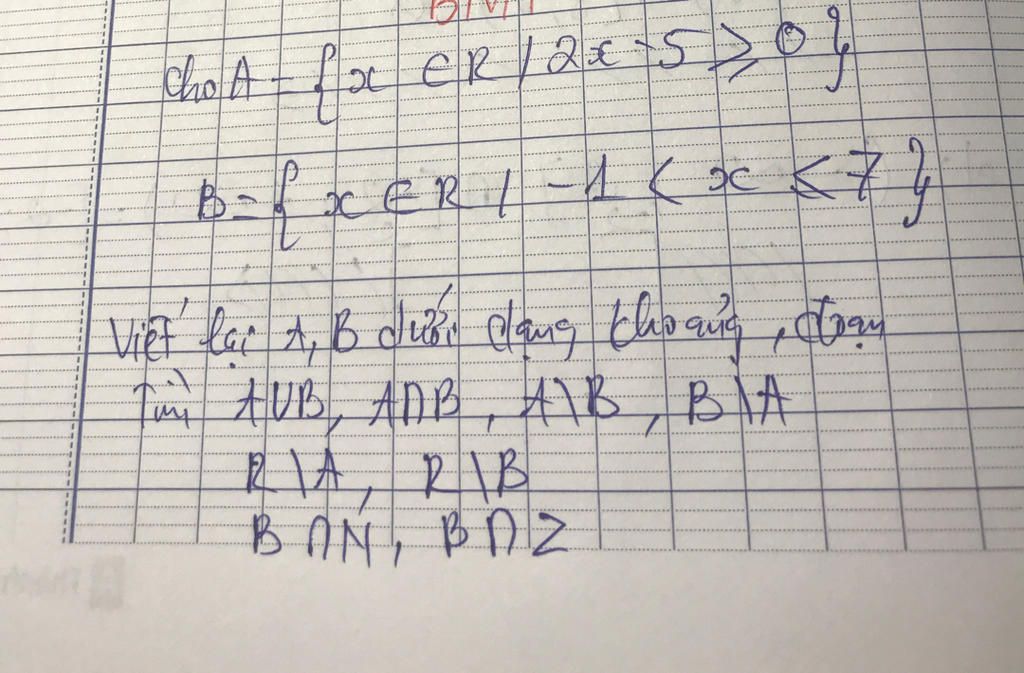 Cho A = { x ∈ R / 2x - 5 ≥ 0 }
B = { x ∈ R / -1 < x ≤ 7 }
Viết lại A, B dưới dạng khoảng, đoạn
Tìm A∪B, A∩B, A\B, B\A
R\A, R\B
B∩N, B∩Z